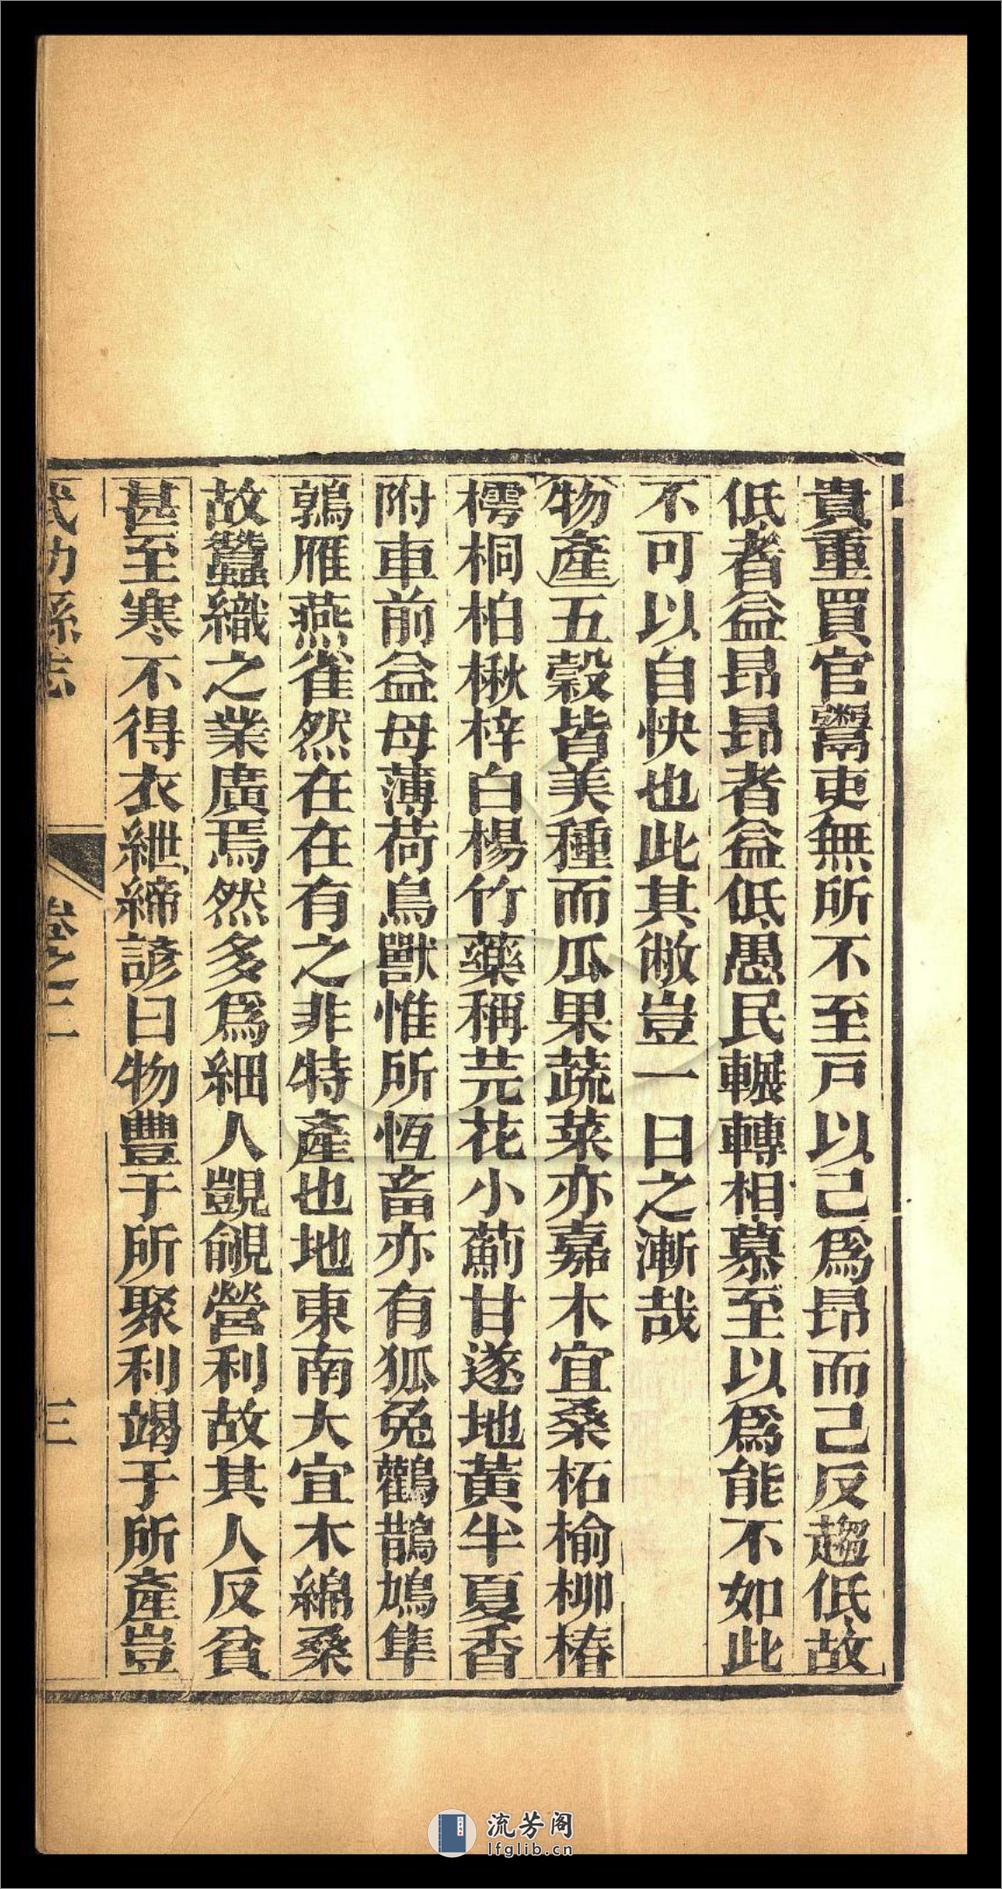 貴重買官鬻吏無所不至戸以己爲昂而己反趨低故
低者益昂昂者益低愚民輾轉相慕至以爲能不如此
不可以自快也此其敝豈一日之漸哉
物產五穀皆美種而瓜果蔬菜亦嘉木宜桑柘榆柳椿
樗桐柏楸梓白楊竹藥稱芫花小薊甘遂地黃半夏香
附車前益母薄荷鳥獸惟所恆畜亦有狐兔鸛鵲鳩隼
鶉雁燕雀然在在有之非特產也地東南大宜木綿桑
故蠶織之業廣焉然多爲細人覬覦營利故其人反貧
甚至寒不得衣紲絺諺曰物豐于所聚利竭于所產豈
武功縣志 卷之二 三
流芳阁
lfglib.cn